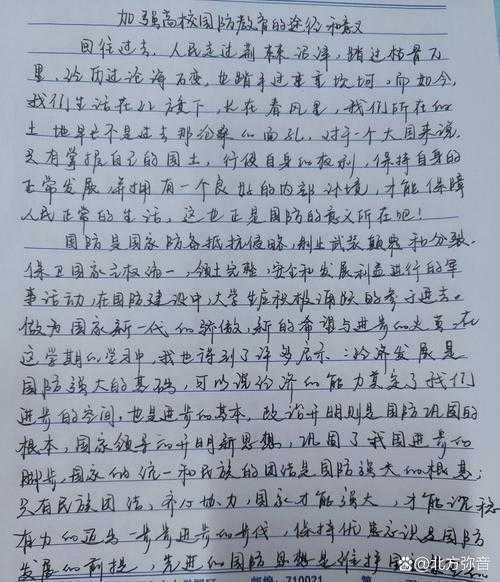 加强高校国防教育的途径和意义
回往过去，人民走过荆棘泥泞，踏过枯骨万
里，经历过沧海百变，也踏来过重重坎坷，而如今，
我们生活在红旗下，长在春风里，我们所在的
土地早已不是过去那份的面孔，对于一个大国来说，
只有掌握自己的国土，行使自身的权利，保持自身的
正常发展，并拥有一个良好的内部环境，才能保障
人民正常的生活，这也正是国防的意义所在吧！
国防是国家防备抵抗侵略，制止武装颠覆和分裂，
保卫国家主权统一，领土完整，安全和发展利益进行的军
事活动，在国防建设中，大学生应积极踊跃的参于进去。
做为国家新一代的骄傲，新的希望与进步的火苗，在
这学期的学习中，我也得到了许多启示：经济发展是
国防强大的基础，可以说经济的能力奠定了我们
进步的空间，也是进步的基本，政治开明则是国防巩固的
根本，国家领导的开明新思想，巩固了我国进步的
脚步，国家的统一和民族的团结是国防强大的根基；
只有民族团结，齐心协力，国家才能强大，才能沉稳
有力的迈出一步步进步的步伐，保持忧患意识是国防
发展的前提，先进的国防思想是维护国
邮编：710021
第
@北方弥音